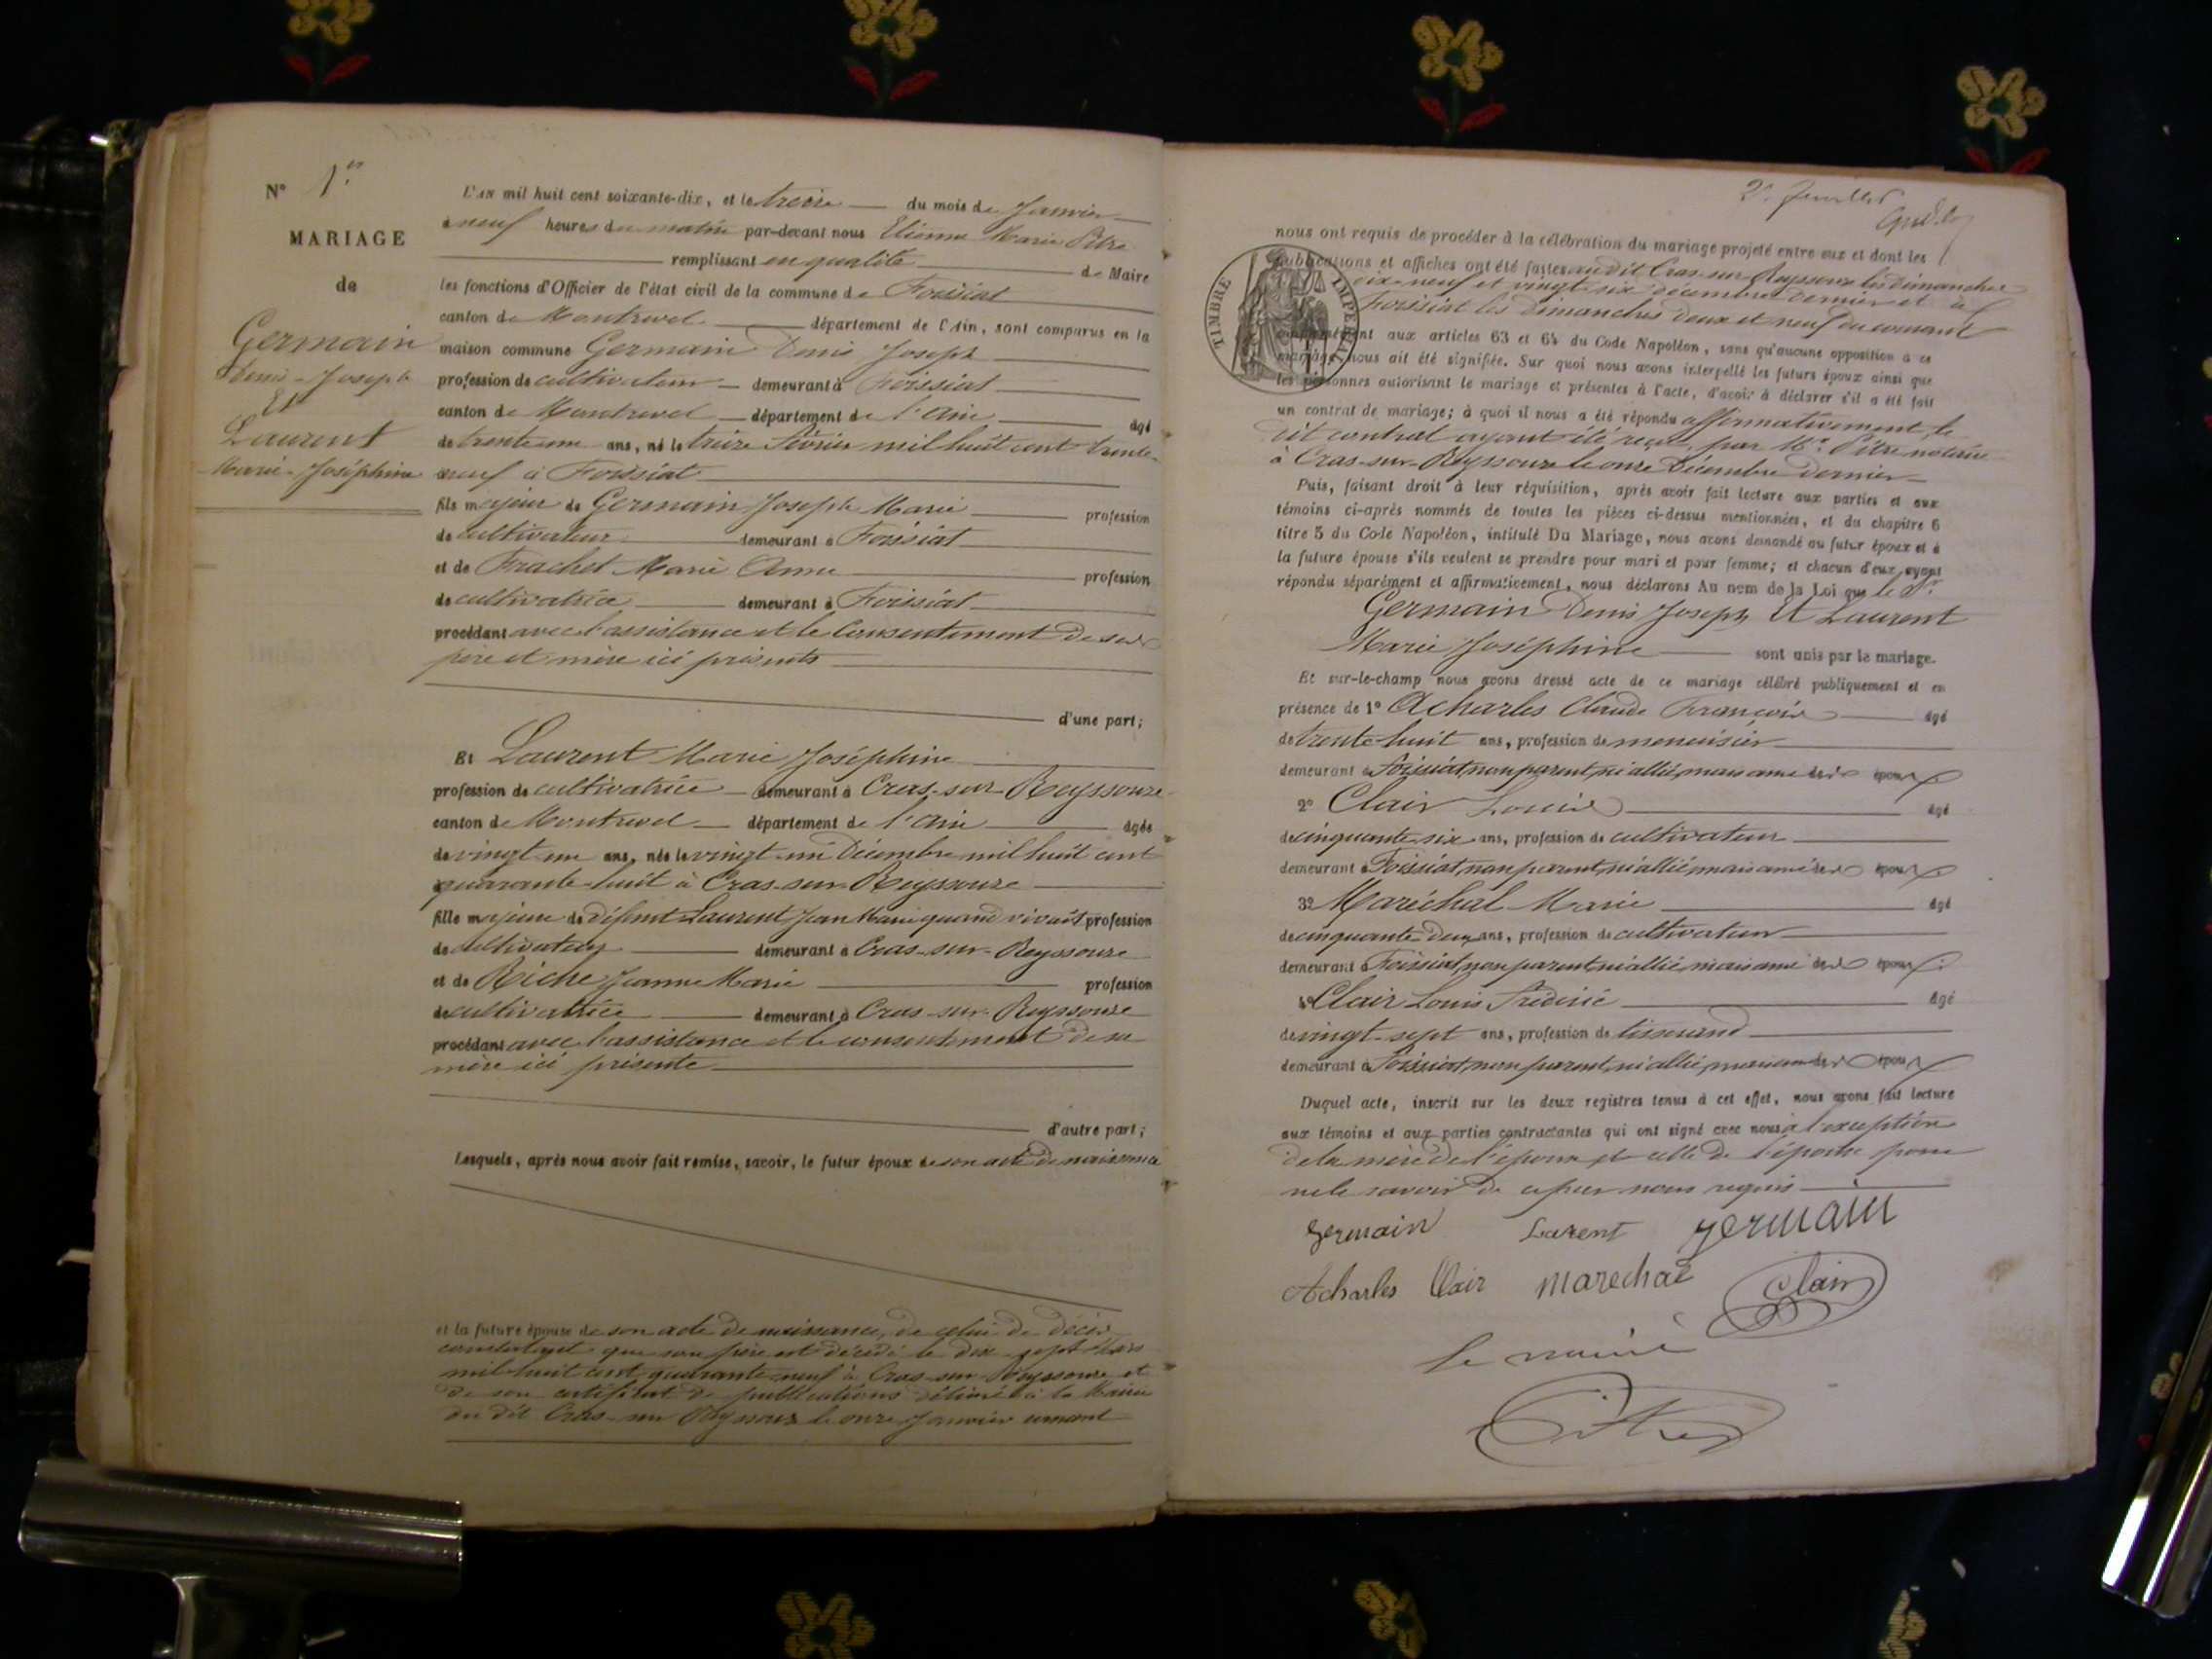 N° 1er
MARIAGE
de
Germain
Denis-Joseph
Et
Laurent
Marie-Joséphine
L'AN mil huit cent soixante-dix, et le treize du mois de Janvier
à neuf heures du matin par-devant nous Etienne Marie Pitre
remplissant en qualité de Maire
les fonctions d'Officier de l'état civil de la commune de Foissiat
canton de Montrevel département de l'Ain, sont comparus en la
maison commune Germain Denis Joseph
profession de cultivateur demeurant à Foissiat
canton de Montrevel département de l'Ain âgé
de trente un ans, né le treize Février mil huit cent trente-
neuf à Foissiat
fils majeur de Germain Joseph Marie profession
de cultivateur demeurant à Foissiat
et de Frachet Marie Anne profession
de cultivatrice demeurant à Foissiat
procédant avec l'assistance et le consentement de ses
père et mère ici présents
d'une part;
Et Laurent Marie Joséphine
profession de cultivatrice demeurant à Cras-sur-Reyssouze
canton de Montrevel département de l'Ain âgée
de vingt un ans, née le vingt-un Décembre mil huit cent
quarante-huit à Cras-sur-Reyssouze
fille majeure de défunt Laurent Jean Marie quand vivait profession
de cultivateur demeurant à Cras-sur-Reyssouze
et de Riche Jeanne Marie profession
de cultivatrice demeurant à Cras-sur-Reyssouze
procédant avec l'assistance et le consentement de sa
mère ici présente
d'autre part;
Lesquels, après nous avoir fait remise, savoir, le futur époux de son acte de naissance
et la future épouse de son acte de naissance, de celui de décès
constatant que son père est décédé le dix-sept Mars
mil huit cent quarante neuf à Cras-sur-Reyssouze et
de son certificat de publications délivré à la Mairie
du dit Cras-sur-Reyssouze le onze Janvier courant
2e feuillet
nous ont requis de procéder à la célébration du mariage projeté entre eux et dont les
publications et affiches ont été faites au dit Cras-sur-Reyssouze les dimanches
dix-neuf et vingt-six décembre dernier et à
Foissiat les Dimanches deux et neuf du courant
TIMBRE IMPERIAL
conformément aux articles 63 et 64 du Code Napoléon, sans qu'aucune opposition à ce
mariage nous ait été signifiée. Sur quoi nous avons interpellé les futurs époux ainsi que
les personnes autorisant le mariage et présentes à l'acte, d'avoir à déclarer s'il a été fait
un contrat de mariage; à quoi il nous a été répondu affirmativement, le
dit contrat ayant été reçu par Me Pitre notaire
à Cras-sur-Reyssouze le onze Décembre dernier
Puis, faisant droit à leur réquisition, après avoir fait lecture aux parties et aux
témoins ci-après nommés de toutes les pièces ci-dessus mentionnées, et du chapitre 6
titre 5 du Code Napoléon, intitulé Du Mariage, nous avons demandé au futur époux et à
la future épouse s'ils veulent se prendre pour mari et pour femme; et chacun d'eux ayant
répondu séparément et affirmativement, nous déclarons Au nom de la Loi que le Sr
Germain Denis Joseph Et Laurent
Marie Joséphine sont unis par le mariage.
Et sur-le-champ nous avons dressé acte de ce mariage célébré publiquement et en
présence de 1° Acharles Claude François âgé
de trente-huit ans, profession de menuisier
demeurant à Foissiat non parent, ni allié, mais ami des époux
2° Clair Louis âgé
de cinquante-six ans, profession de cultivateur
demeurant à Foissiat, non parent, ni allié, mais ami des époux
3° Maréchal Marie âgé
de cinquante-deux ans, profession de cultivateur
demeurant à Foissiat, non parent, ni allié, mais ami des époux
4° Clair Louis Frédéric âgé
de vingt-sept ans, profession de tisserand
demeurant à Foissiat, non parent, ni allié, mais ami des époux
Duquel acte, inscrit sur les deux registres tenus à cet effet, nous avons fait lecture
aux témoins et aux parties contractantes qui ont signé avec nous à l'exception
de la mère de l'époux et celle de l'épouse pour
ne le savoir de ce par nous requis
germain Laurent germain
Acharles Clair marechal Clair
le maire
Pitre